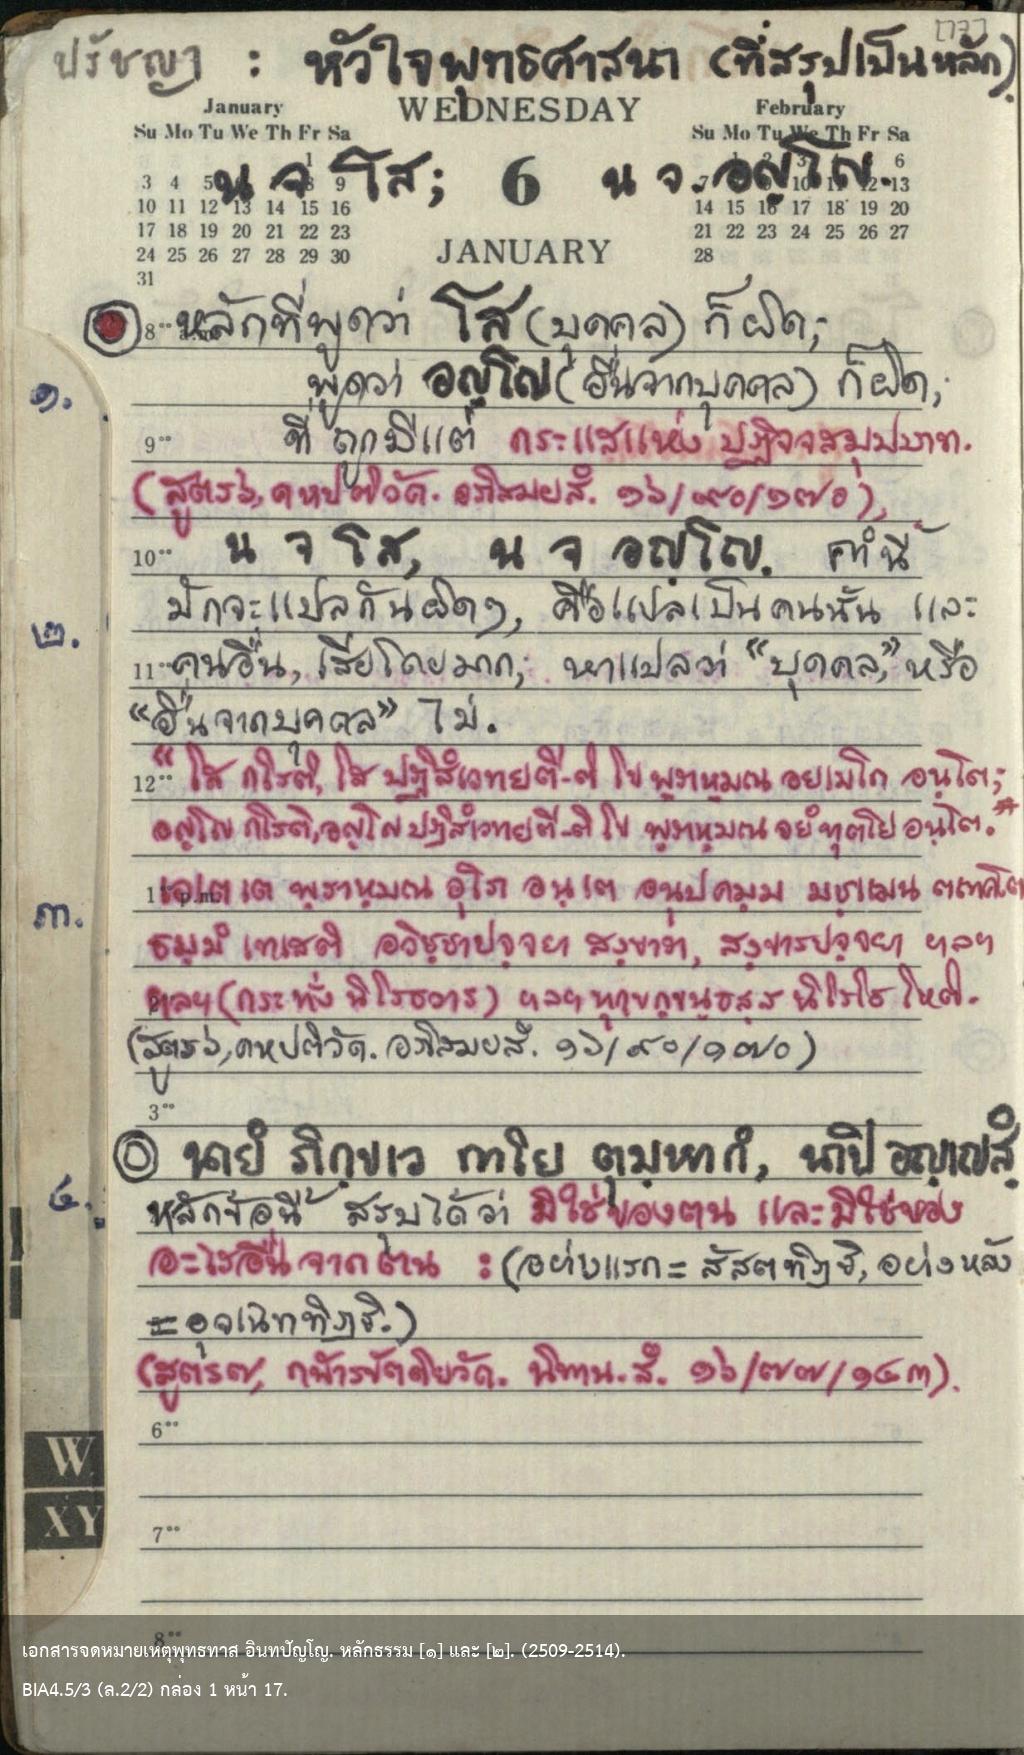 [17]
ปรัชญา : หัวใจพุทธศาสนา (ที่สรุปเป็นหลัก)
January WEDNESDAY February
Su Mo Tu We Th Fr Sa Su Mo Tu We Th Fr Sa
น จ โส; 6 น จ. อญฺโญ.
3 4 5 8 9 7 10 11 12 13
10 11 12 13 14 15 16 14 15 16 17 18 19 20
17 18 19 20 21 22 23 21 22 23 24 25 26 27
24 25 26 27 28 29 30 JANUARY 28
31
8°° หลักที่พูดว่า โส (บุคคล) ก็ผิด;
๑. พูดว่า อญฺโญ (อื่นจากบุคคล) ก็ผิด;
9°° ที่ถูกมีแต่ กระแสแห่ง ปฏิจจสมุปบาท.
(สูตร ๖, คหปติวัค. อภิสมยสํ. ๑๖/๙๐/๑๗๐),
10°° น จ โส, น จ อญฺโญ. คำนี้
มักจะแปลกันผิดๆ, คือแปลเป็นคนนั้น และ
๒. 11°° คนอื่น, เสียโดยมาก; หาแปลว่า “บุคคล,” หรือ
“อื่นจากบุคคล” ไม่.
12°° “โส กโรติ, โส ปฏิสํเวทยตี-ติ โข พฺราหฺมณ อยเมโก อนฺโต;
อญฺโญ กโรติ, อญฺโญ ปฏิสํเวทยตี-ติ โข พฺราหฺมณ อยํ ทุติโย อนฺโต.”
๓. 1°° p.m. เอเต เต พฺราหฺมณ อุโภ อนฺเต อนุปคมฺม มชฺเฌน ตถาคโต
ธมฺมํ เทเสติ อวิชฺชาปจฺจยา สงฺขารา, สงฺขารปจฺจยา ฯลฯ
ฯลฯ (กระทั่ง นิโรธวาร) ฯลฯ ทุกฺขกฺขนฺธสฺส นิโรโธ โหติ.
(สูตร ๖, คหปติวัค. อภิสมยสํ. ๑๖/๙๐/๑๗๐)
3°°
นายํ ภิกฺขเว กาโย ตุมฺหากํ, นาปิ อญฺเญสํ
๔. หลักข้อนี้ สรุปได้ว่า มิใช่ของตน และมิใช่ของ
อะไรอื่นจากตน : (อย่างแรก = สัสตทิฏฐิ, อย่างหลัง
= อุจเฉททิฏฐิ.)
(สูตร ๗, กฬารขัตติยวัค. นิทาน.สํ. ๑๖/๗๗/๑๔๓).
6°°
7°°
8°°
W
XY
เอกสารจดหมายเหตุพุทธทาส อินทปัญโญ. หลักธรรม [๑] และ [๒]. (2509-2514).
BIA4.5/3 (ล.2/2) กล่อง 1 หน้า 17.